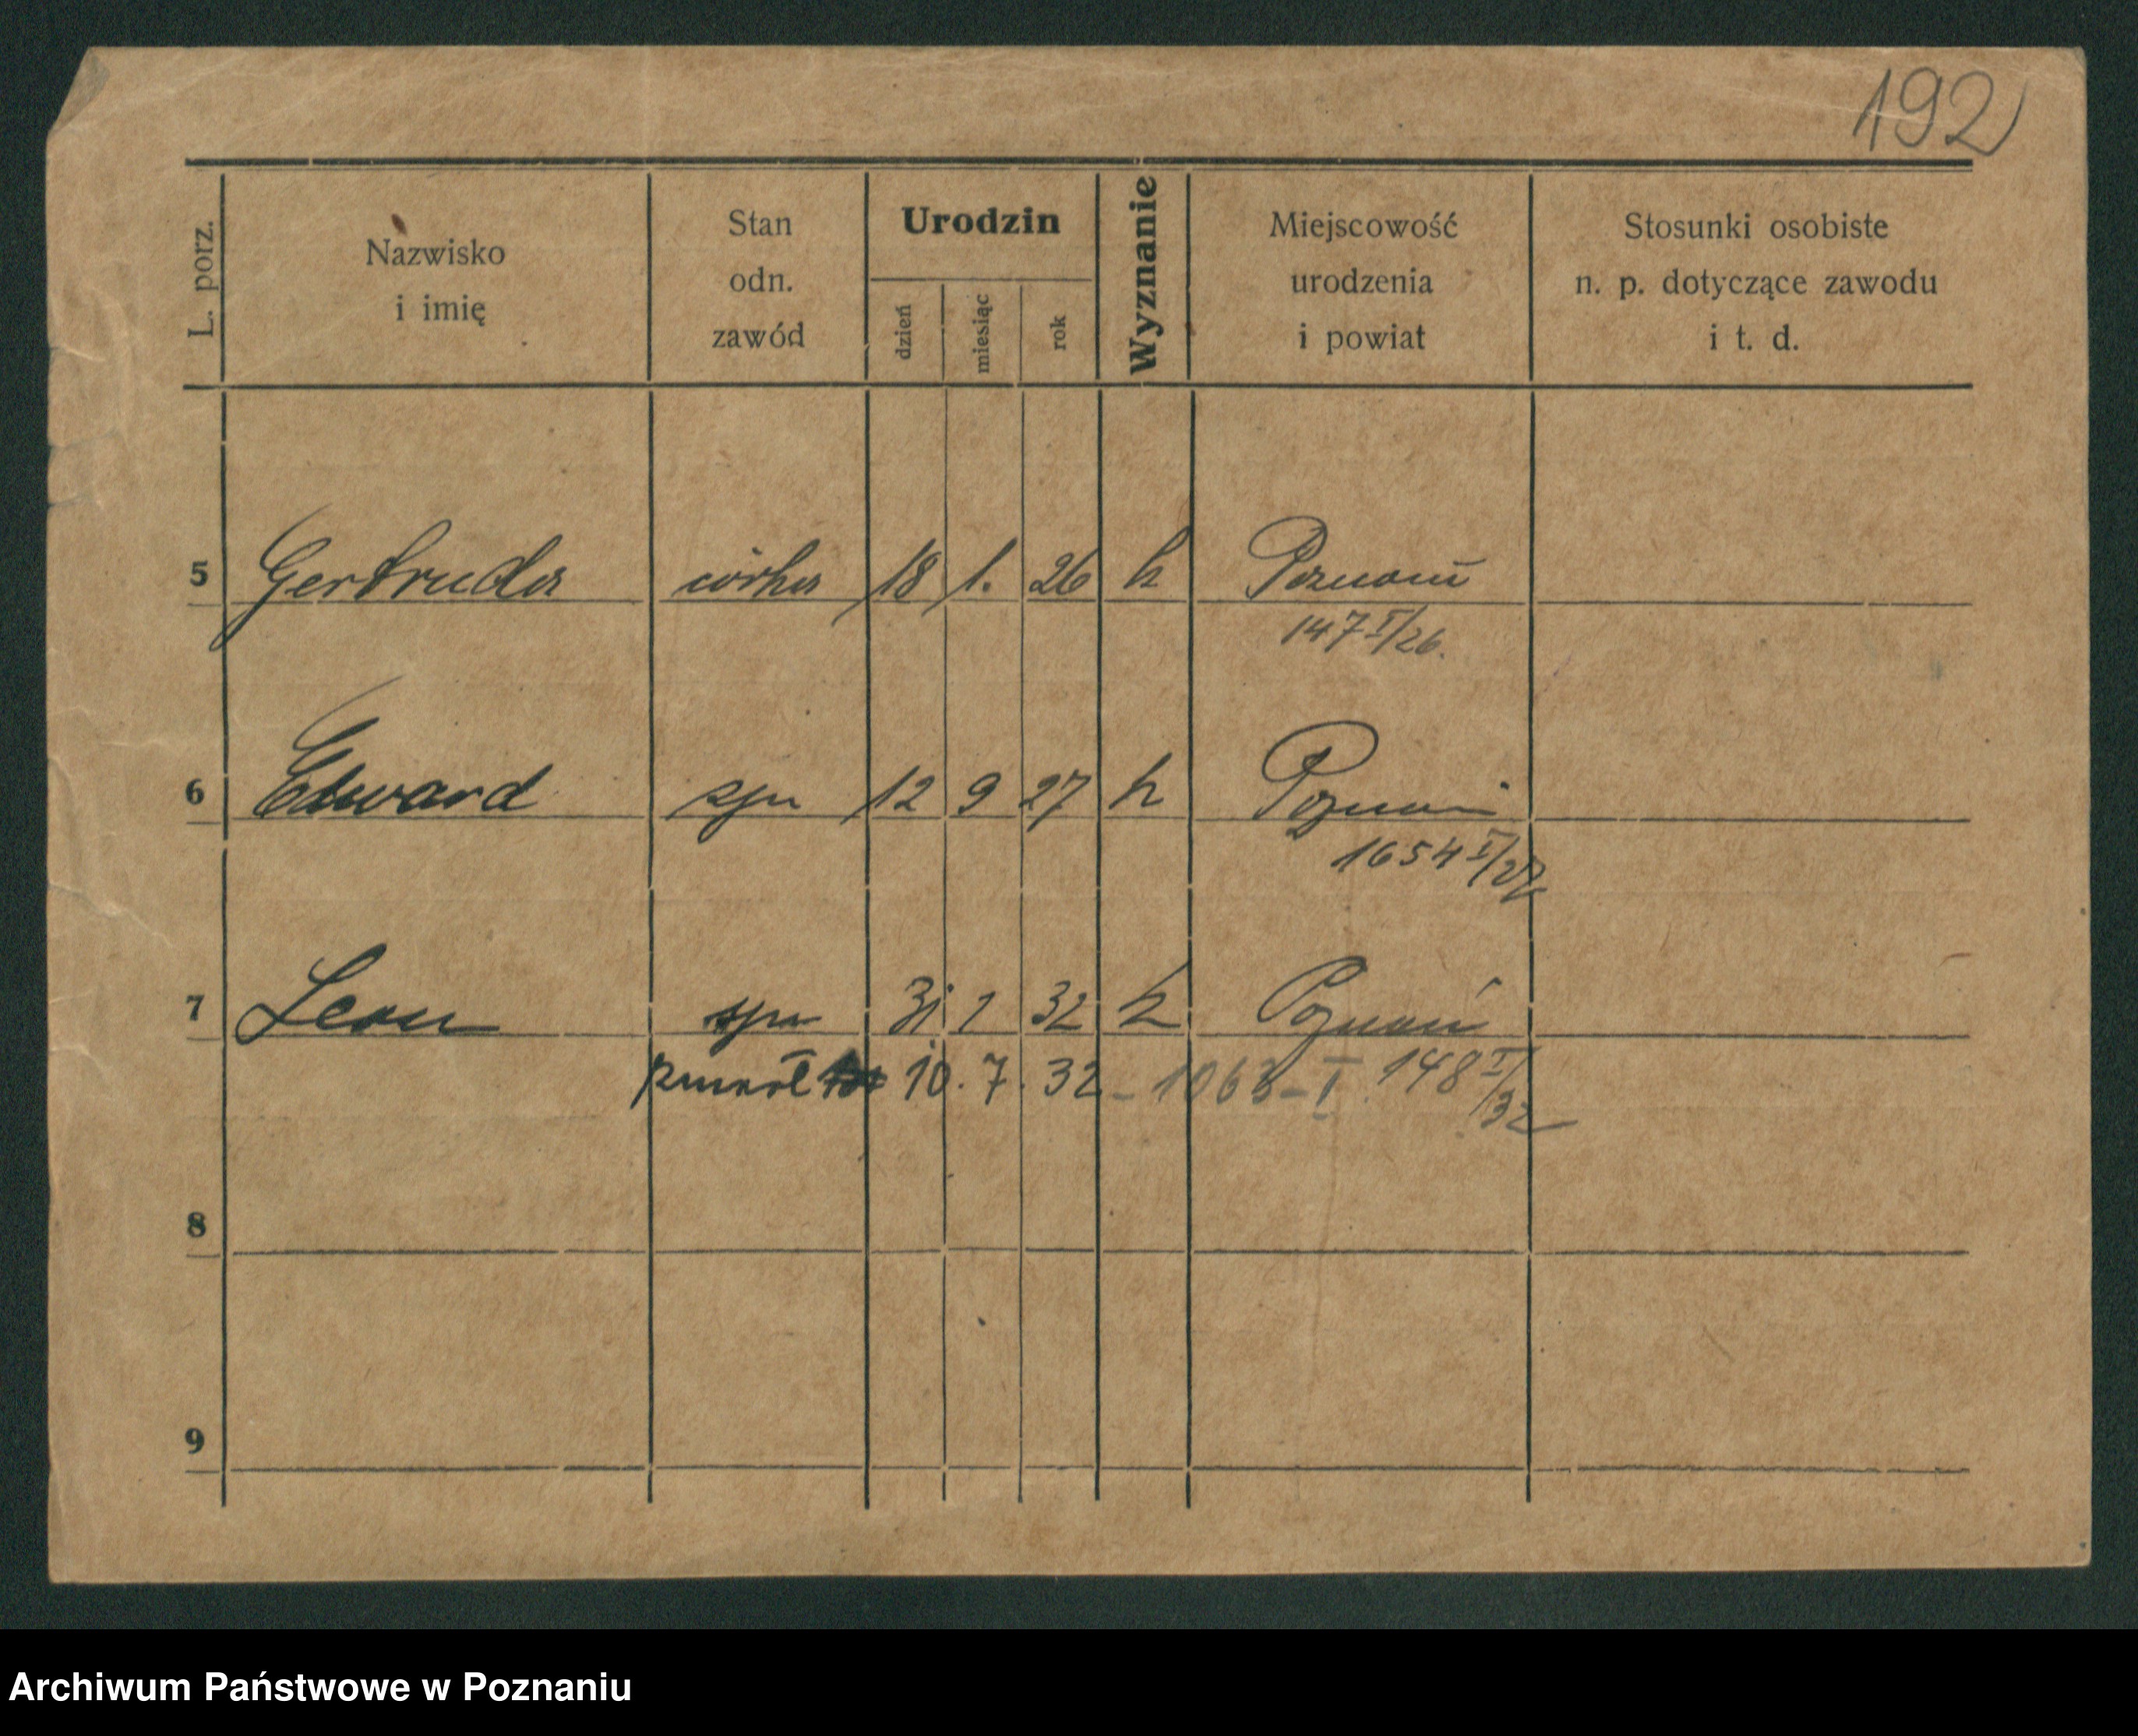 192
L. porz.
Nazwisko
i imię
Stan
odn.
zawód
Urodzin
dzień
miesiąc
rok
Wyznanie
Miejscowość
urodzenia
i powiat
Stosunki osobiste
n. p. dotyczące zawodu
i t. d.
5 Gertruda córka 18 1. 26 k Poznań
147 I/26.
6 Edward syn 12 9 27 k Poznań
1654 I/27
7 Leon syn 31 1 32 k Poznań
zmarł 10. 7. 32 - 1063 - I. 148 I/32
8
9
Archiwum Państwowe w Poznaniu